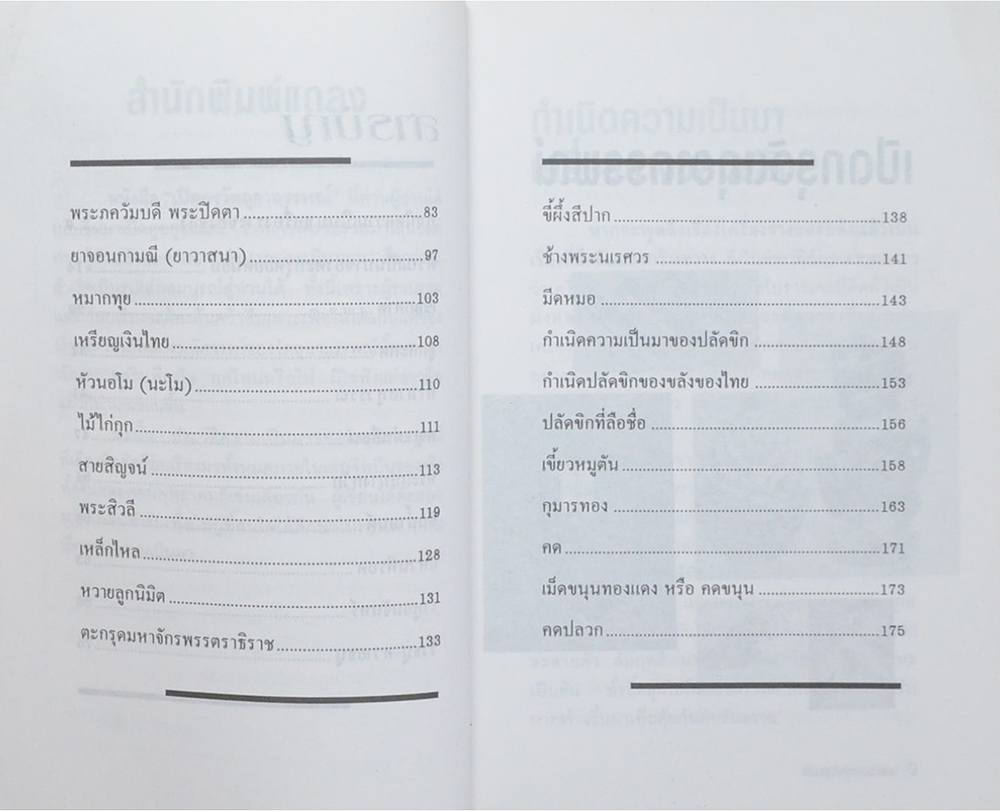 พระภควัมบดี พระปิดตา 83
ยาจอนกามณี (ยาวาสนา) 97
หมากทุย 103
เหรียญเงินไทย 108
หัวนอโม (นะโม) 110
ไม้ไก่กุก 111
สายสิญจน์ 113
พระสิวลี 119
เหล็กไหล 128
หวายลูกนิมิต 131
ตะกรุดมหาจักรพรรตราธิราช 133
ขี้ผึ้งสีปาก 138
ช้างพระนเรศวร 141
มีดหมอ 143
กำเนิดความเป็นมาของปลัดขิก 148
กำเนิดปลัดขิกของขลังของไทย 153
ปลัดขิกที่ลือชื่อ 156
เขี้ยวหมูตัน 158
กุมารทอง 163
คด 171
เม็ดขนุนทองแดง หรือ คดขนุน 173
คดปลวก 175